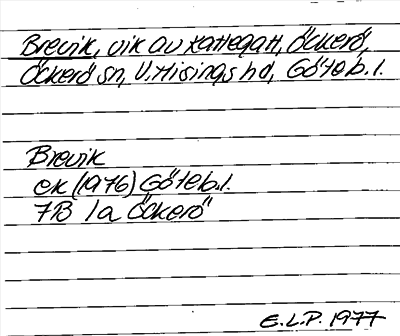 Brevik, vik av Kattegatt, Öckerö,
Öckerö sn, V. Hisings hd, Göteb. l.
Brevik
ek (1976) Göteb. l.
7B 1a Öckerö
E.L.P. 1977